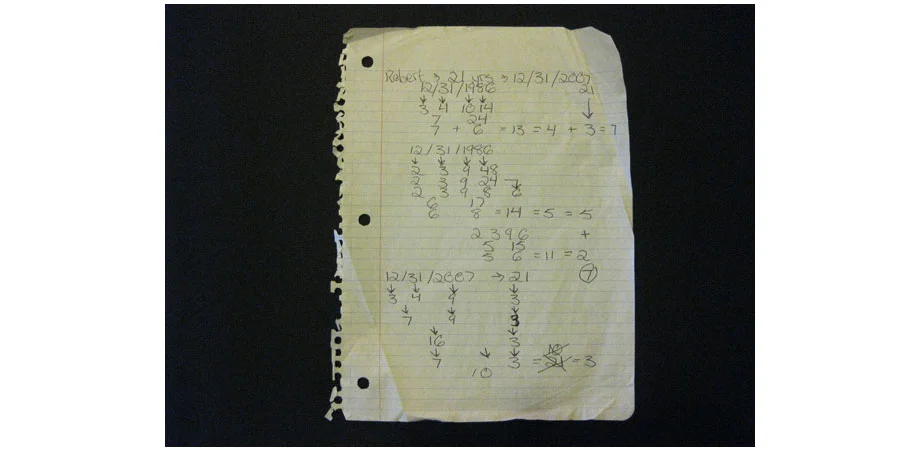 Robert → 21 yrs → 12/31/2007
12/31/1986 21
↓ ↓ ↓ ↓ ↓
3 4 10 14
7 24
7 + 6 = 13 = 4 + 3 = 7
12/31/1986
↓ ↓ ↓ ↓
2 3 9 48
2 3 9 24 7
2 3 9 8 6
6 17
6 8 = 14 = 5 = 5
2 3 9 6 +
5 15
5 6 = 11 = 2
12/31/2007 → 21 7
↓ ↓ ↓ ↓
3 4 9 3
↓ ↓ ↓
7 9 3
↓ ↓
16 3
↓ ↓ ↓ 10
7 3 = = 3
10